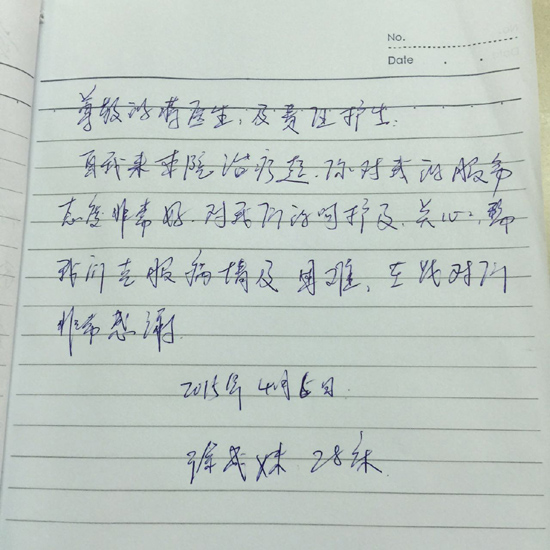 No.
Date
尊敬的蒋医生,及责任护生:
自我来本院治疗起.你对我的服务
态度非常好.对我们的呵护及.关心.
我们克服病情及困难,在我对们
非常感谢.
2015年4月5日.
徐我妹 28床.